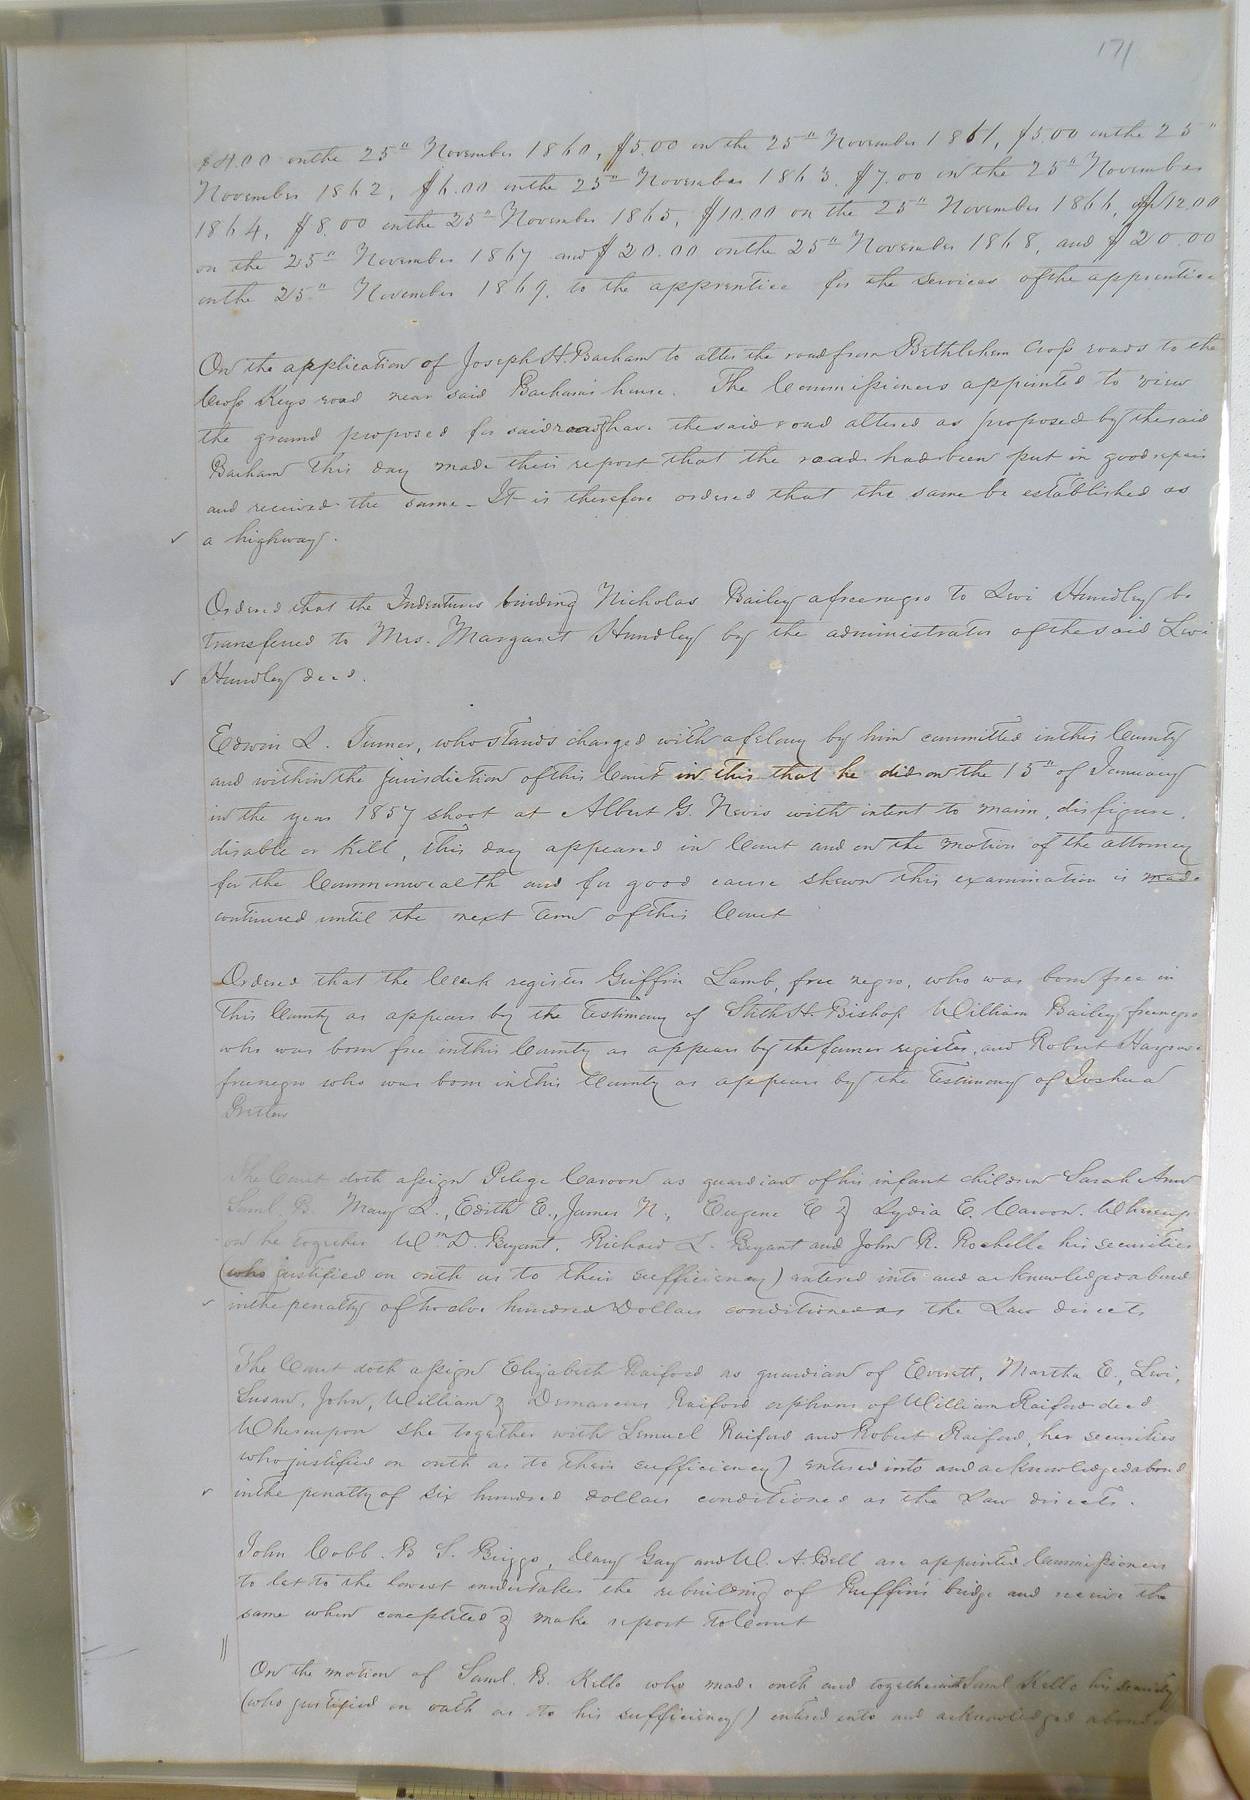 171
$4.00 on the 25th November 1860, $5.00 on the 25th November 1861, $5.00 on the 25th
November 1862, $6.00 on the 25th November 1863, $7.00 on the 25th November
1864, $8.00 on the 25th November 1865, $10.00 on the 25th November 1866, $12.00
on the 25th November 1867 and $20.00 on the 25th November 1868, and $20.00
on the 25th November 1869, to the apprentice for the services of the apprentice
On the application of Joseph H. Barham to alter the road from Bethlehem Cross roads to the
Cross Keys road near said Barham's house. The Commissioners appointed to view
the ground proposed for said road & have the said road altered as proposed by the said
Barham this day made their report that the road had been put in good repair
and received the same - It is therefore ordered that the same be established as
a highway.
Ordered that the Indentures binding Nicholas Bailey a free negro to Levi Hundley be
transferred to Mrs. Margaret Hundley by the administrator of the said Levi
Hundley decd.
Edwin L. Turner, who stands charged with a felony by him committed in this County
and within the jurisdiction of this Court in this that he did on the 15th of January
in the year 1857 shoot at Albert G. Nevis with intent to maim, disfigure,
disable or kill, this day appeared in Court and on the motion of the attorney
for the Commonwealth and for good cause shewn this examination is made
continued until the next term of this Court
Ordered that the Clerk register Griffin Lamb, free negro, who was born free in
this County as appears by the testimony of Stith H. Bishop William Bailey free negro
who was born free in this County as appears by the former register, and Robert Hargrave
free negro who was born in this County as appears by the testimony of Joshua
Pretlow
The Court doth assign Pelege Caroon as guardian of his infant children Sarah Ann
Saml. B. Mary L., Edith E., James N., Eugene C & Lydia E. Caroon. Whereup-
on he together Wm D. Bryant, Richard L. Bryant and John R. Rochelle his securities
(who justified on oath as to their sufficiency) entered into and acknowledged a bond
in the penalty of twelve hundred Dollars conditioned as the Law directs
The Court doth assign Elizabeth Raiford as guardian of Everett, Martha E., Levi,
Susan, John, William & Demarcus Raiford orphans of William Raiford decd
Whereupon she together with Lemuel Raiford and Robert Raiford, her securities
who justified on oath as to their sufficiency) entered into and acknowledged a bond
in the penalty of six hundred dollars conditioned as the Law directs.
John Cobb. B S. Briggs, Clary Gay and W. A. Bell are appointed Commissioners
to let to the lowest undertaker the rebuilding of Ruffin's bridge and receive the
same when completed & make report to Court
On the motion of Saml. B. Kello who made oath and together with Saml Kello his security
(who justified on oath as to his sufficiency) entered into and acknowledged a bond